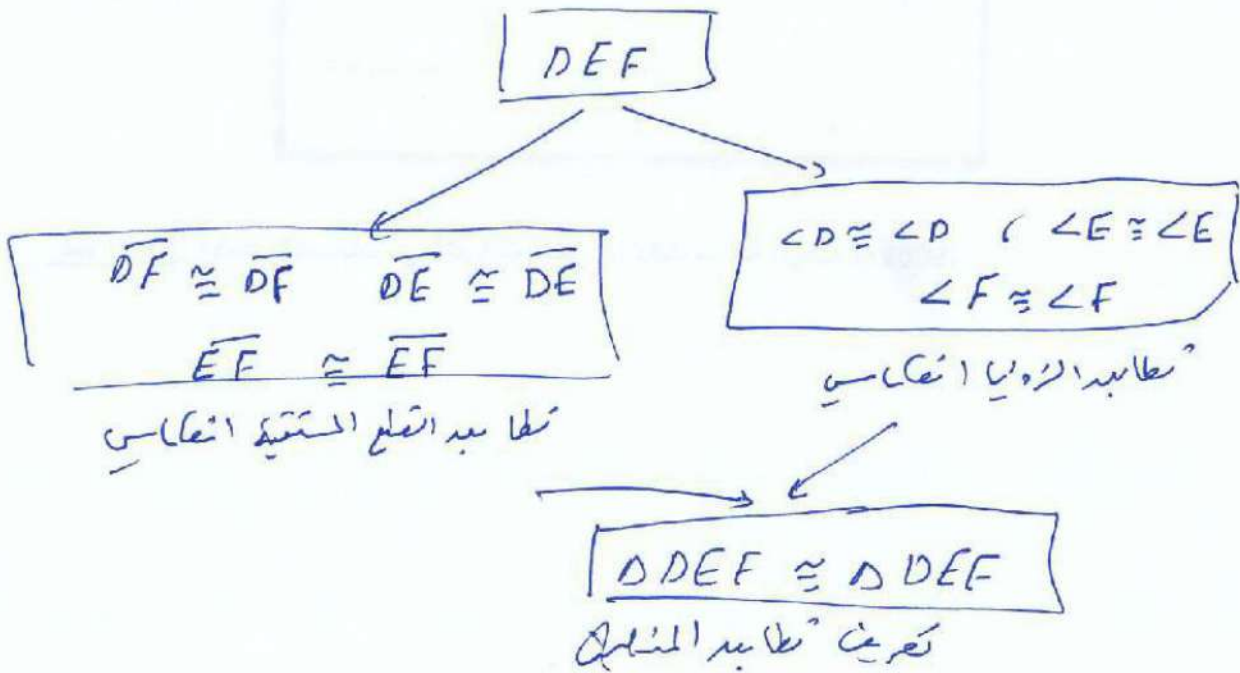 DEF
DF ≅ DF DE ≅ DE
EF ≅ EF
تطابق القطع المستقيمة انعكاسي
∠D ≅ ∠D ، ∠E ≅ ∠E
∠F ≅ ∠F
تطابق الزوايا انعكاسي
Δ DEF ≅ Δ DEF
تعريف تطابق المثلثات